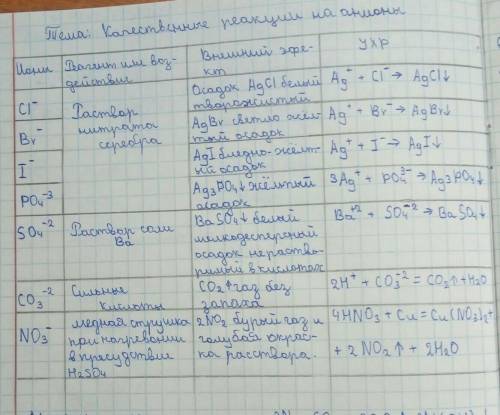 Тема: Качественные реакции на анионы
Ионы | Реагент или воздействия | Внешний эфект | УХР
Cl⁻ | Раствор нитрата серебра | Осадок AgCl белый творожистый | Ag⁺ + Cl⁻ → AgCl↓
Br⁻ | AgBr светло жёлтый осадок | Ag⁺ + Br⁻ → AgBr↓
I⁻ | AgI бледно-жёлтый осадок | Ag⁺ + I⁻ → AgI↓
PO₄⁻³ | Ag₃PO₄↓ жёлтый осадок | 3Ag⁺ + PO₄³⁻ → Ag₃PO₄↓
SO₄⁻² | Раствор соли Ba | BaSO₄↓ белый мелкодесперсный осадок нерастворимый в кислотах | Ba⁺² + SO₄⁻² → BaSO₄↓
CO₃⁻² | Сильные кислоты | CO₂↑ газ без запаха | 2H⁺ + CO₃⁻² = CO₂↑ + H₂O
NO₃⁻ | медная стружка при нагревании в присудствии H₂SO₄ | 2NO₂ бурый газ и голубой окраска расствора. | 4HNO₃ + Cu = Cu(NO₃)₂ + + 2NO₂↑ + 2H₂O